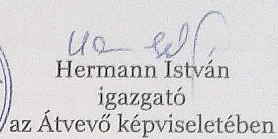 Hermann István
igazgató
az Átvevő képviseletében